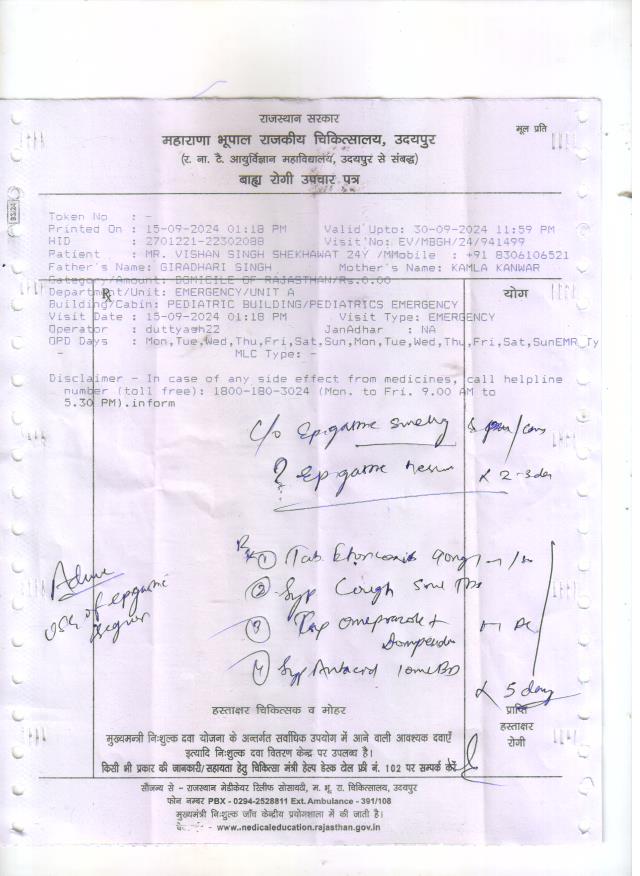 राजस्थान सरकार
मूल प्रति
महाराणा भूपाल राजकीय चिकित्सालय, उदयपुर
(र. ना. टै. आयुर्विज्ञान महाविद्यालय, उदयपुर से संबद्ध)
बाह्य रोगी उपचार पत्र
Token No : -
Printed On : 15-09-2024 01:18 PM Valid Upto: 30-09-2024 11:59 PM
HID : 2701221-22302088 Visit No: EV/MBGH/24/941499
Patient : MR. VISHAN SINGH SHEKHAWAT 24Y /MMobile : +91 8306106521
Father's Name: GIRADHARI SINGH Mother's Name: KAMLA KANWAR
Category/Amount: DOMICILE OF RAJASTHAN/Rs.0.00
Department/Unit: EMERGENCY/UNIT A
योग
Building/Cabin: PEDIATRIC BUILDING/PEDIATRICS EMERGENCY
Visit Date : 15-09-2024 01:18 PM Visit Type: EMERGENCY
Operator : duttyash22 JanAdhar : NA
OPD Days : Mon,Tue,Wed,Thu,Fri,Sat,Sun,Mon,Tue,Wed,Thu,Fri,Sat,SunEMR_Ty
- MLC Type: -
Disclaimer - In case of any side effect from medicines, call helpline
number (toll free): 1800-180-3024 (Mon. to Fri. 9.00 AM to
5.30 PM).inform
C/o
? 2-3 day
Rx
① Tab. 90mg
② Syp Cough 5ml TDS
③ Omeprazole +
④ Syp Antacid 10ml BD
Advise
USG of
x 5 day
हस्ताक्षर चिकित्सक व मोहर
प्राप्ति
हस्ताक्षर
रोगी
मुख्यमन्त्री निःशुल्क दवा योजना के अन्तर्गत सर्वाधिक उपयोग में आने वाली आवश्यक दवाऐं
इत्यादि निःशुल्क दवा वितरण केन्द्र पर उपलब्ध है।
किसी भी प्रकार की जानकारी/सहायता हेतु चिकित्सा मंत्री हेल्प डेस्क टोल फ्री नं. 102 पर सम्पर्क करें
सौजन्य से - राजस्थान मेडीकेयर रिलीफ सोसायटी, म. भू. रा. चिकित्सालय, उदयपुर
फोन नम्बर PBX - 0294-2528811 Ext. Ambulance - 391/108
मुख्यमंत्री निःशुल्क जाँच केन्द्रीय प्रयोगशाला में की जाती है।
- www.nedicaleducation.rajasthan.gov.in